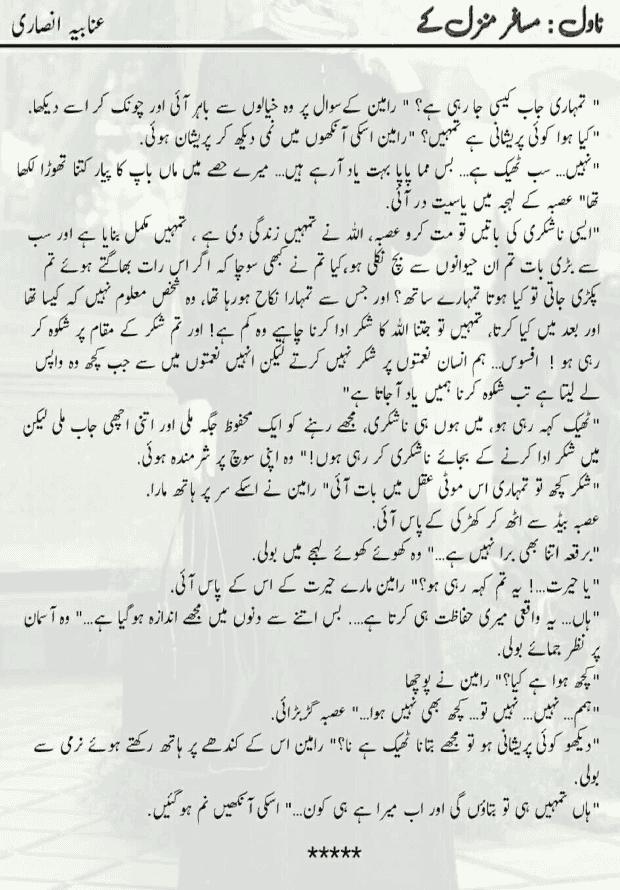 ناول: مسافر منزل کے
عنابیہ انصاری
" تمہاری جاب کیسی جا رہی ہے؟ " رامین کے سوال پر وہ خیالوں سے باہر آئی اور چونک کر اسے دیکھا۔
"کیا ہوا کوئی پریشانی ہے تمہیں؟ "رامین اسکی آنکھوں میں نمی دیکھ کر پریشان ہوئی.
"نہیں... سب ٹھیک ہے... بس مما پاپا بہت یاد آرہے ہیں... میرے حصے میں ماں باپ کا پیار کتنا تھوڑا لکھا
تھا" عصبہ کے لہجہ میں یاسیت در آئی.
"ایسی ناشکری کی باتیں تو مت کرو عصبہ، اللہ نے تمہیں زندگی دی ہے ، تمہیں مکمل بنایا ہے اور سب
سے بڑی بات تم ان حیوانوں سے بچ نکلی ہو،کیا تم نے کبھی سوچا کہ اگر اس رات بھاگتے ہوئے تم
پکڑی جاتی تو کیا ہوتا تمہارے ساتھ؟ اور جس سے تمہارا نکاح ہورہا تھا، وہ شخص معلوم نہیں کہ کیسا تھا
اور بعد میں کیا کرتا، تمہیں تو جتنا اللہ کا شکر ادا کرنا چاہیے وہ کم ہے! اور تم شکر کے مقام پر شکوہ کر
رہی ہو ! افسوس... ہم انسان نعمتوں پر شکر نہیں کرتے لیکن انہیں نعمتوں میں سے جب کچھ وہ واپس
لے لیتا ہے تب شکوہ کرنا ہمیں یاد آ جاتا ہے"
"ٹھیک کہہ رہی ہو، میں ہوں ہی ناشکری، مجھے رہنے کو ایک محفوظ جگہ ملی اور اتنی اچھی جاب ملی لیکن
میں شکر ادا کرنے کے بجائے ناشکری کر رہی ہوں!" وہ اپنی سوچ پر شرمندہ ہوئی.
"شکر کچھ تو تمہاری اس موٹی عقل میں بات آئی" رامین نے اسکے سر پر ہاتھ مارا.
عصبہ بیڈ سے اٹھ کر کھڑکی کے پاس آئی.
"برقعہ اتنا بھی برا نہیں ہے..." وہ کھوئے کھوئے لہجے میں بولی.
"یا حیرت...! یہ تم کہہ رہی ہو؟" رامین مارے حیرت کے اس کے پاس آئی.
"ہاں... یہ واقعی میری حفاظت ہی کرتا ہے.... بس اتنے سے دنوں میں مجھے اندازہ ہوگیا ہے..." وہ آسمان
پر نظر جمائے بولی.
"کچھ ہوا ہے کیا؟" رامین نے پوچھا
"ہمم... نہیں... نہیں تو... کچھ بھی نہیں ہوا..." عصبہ گڑبڑائی.
"دیکھو کوئی پریشانی ہو تو مجھے بتانا ٹھیک ہے نا؟" رامین اس کے کندھے پر ہاتھ رکھتے ہوئے نرمی سے
بولی.
"ہاں تمہیں ہی تو بتاؤں گی اور اب میرا ہے ہی کون..." اسکی آنکھیں نم ہو گئیں.
*****